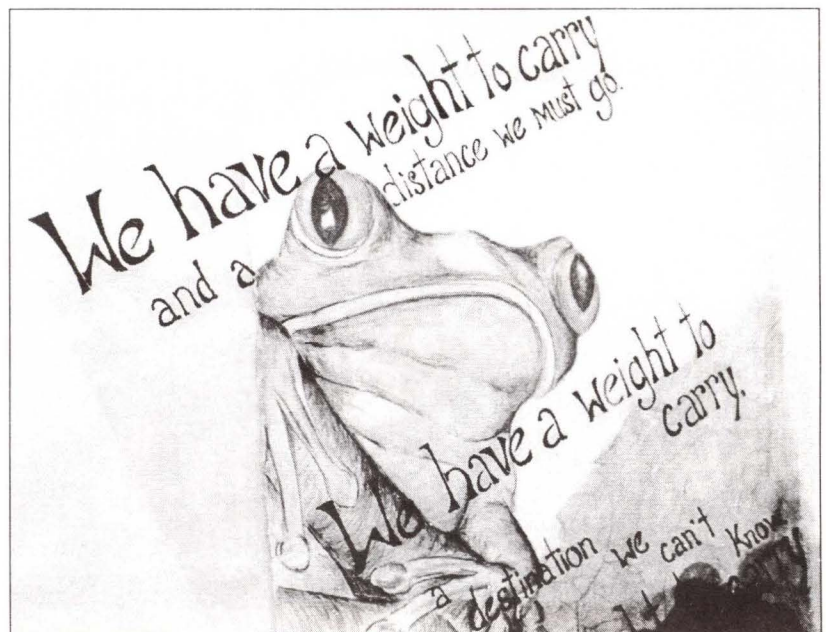 We have a weight to carry
and a distance we must go.
We have a weight to
carry,
a destination we can't know.